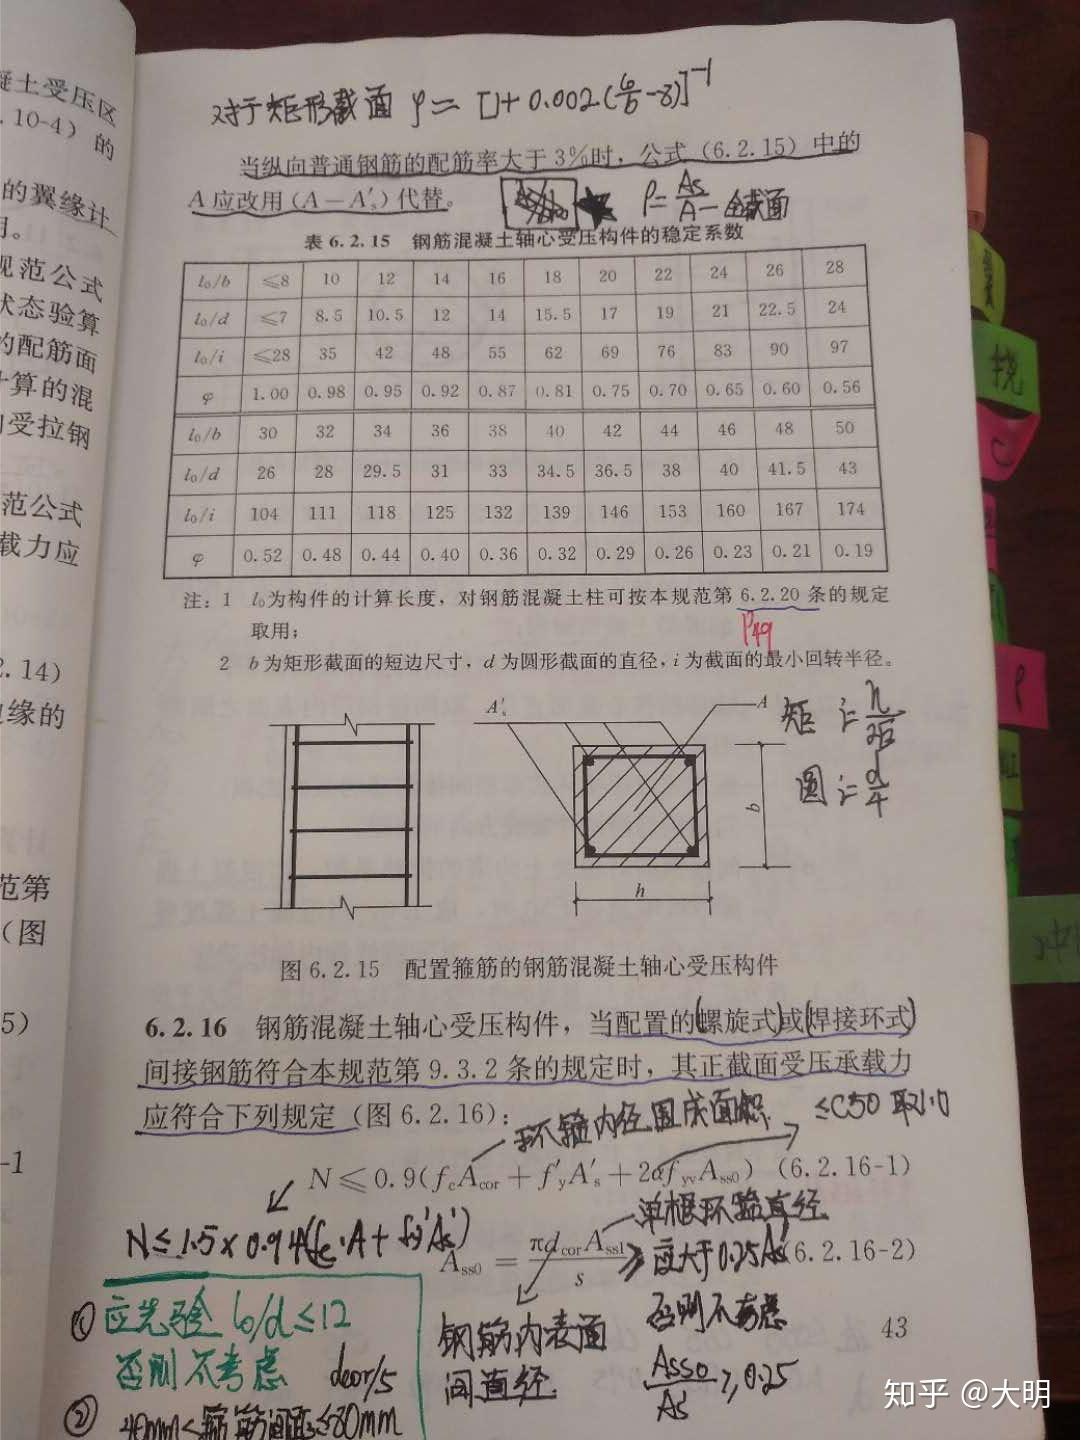 对于矩形截面 φ = [1+0.002(l₀/b-8)]⁻¹
当纵向普通钢筋的配筋率大于 3%时，公式（6.2.15）中的
A 应改用（A－A's）代替。
ρ= As/A — 全截面
表 6.2.15 钢筋混凝土轴心受压构件的稳定系数
l₀/b ≤8 10 12 14 16 18 20 22 24 26 28
l₀/d ≤7 8.5 10.5 12 14 15.5 17 19 21 22.5 24
l₀/i ≤28 35 42 48 55 62 69 76 83 90 97
φ 1.00 0.98 0.95 0.92 0.87 0.81 0.75 0.70 0.65 0.60 0.56
l₀/b 30 32 34 36 38 40 42 44 46 48 50
l₀/d 26 28 29.5 31 33 34.5 36.5 38 40 41.5 43
l₀/i 104 111 118 125 132 139 146 153 160 167 174
φ 0.52 0.48 0.44 0.40 0.36 0.32 0.29 0.26 0.23 0.21 0.19
注：1 l₀为构件的计算长度，对钢筋混凝土柱可按本规范第 6.2.20 条的规定
取用；
P49
2 b 为矩形截面的短边尺寸，d 为圆形截面的直径，i 为截面的最小回转半径。
A's
A
矩 i= h/2√3
圆 i= d/4
b
h
图 6.2.15 配置箍筋的钢筋混凝土轴心受压构件
6.2.16 钢筋混凝土轴心受压构件，当配置的螺旋式或焊接环式
间接钢筋符合本规范第 9.3.2 条的规定时，其正截面受压承载力
应符合下列规定（图 6.2.16）：
环箍内径围成面积
≤C50 取1.0
N≤0.9(fcAcor＋f'yA's＋2αfyvAss0) (6.2.16-1)
单根环箍直径
N≤1.5×0.9φ(fc·A+fy'As')
Ass0 = πdcorAss1/s (6.2.16-2)
应大于0.25As'
否则不考虑
Ass0/As ≥0.25
钢筋内表面
间直径
① 应先验 l₀/d≤12
否则不考虑
dcor/5
② 40mm≤箍筋间距≤80mm
43
凝土受压区
.10-4）的
的翼缘计
用。
规范公式
状态验算
的配筋面
计算的混
受拉钢
范公式
载力应
2.14）
缘的
范第
（图
5）
-1
挠
知乎 @大明